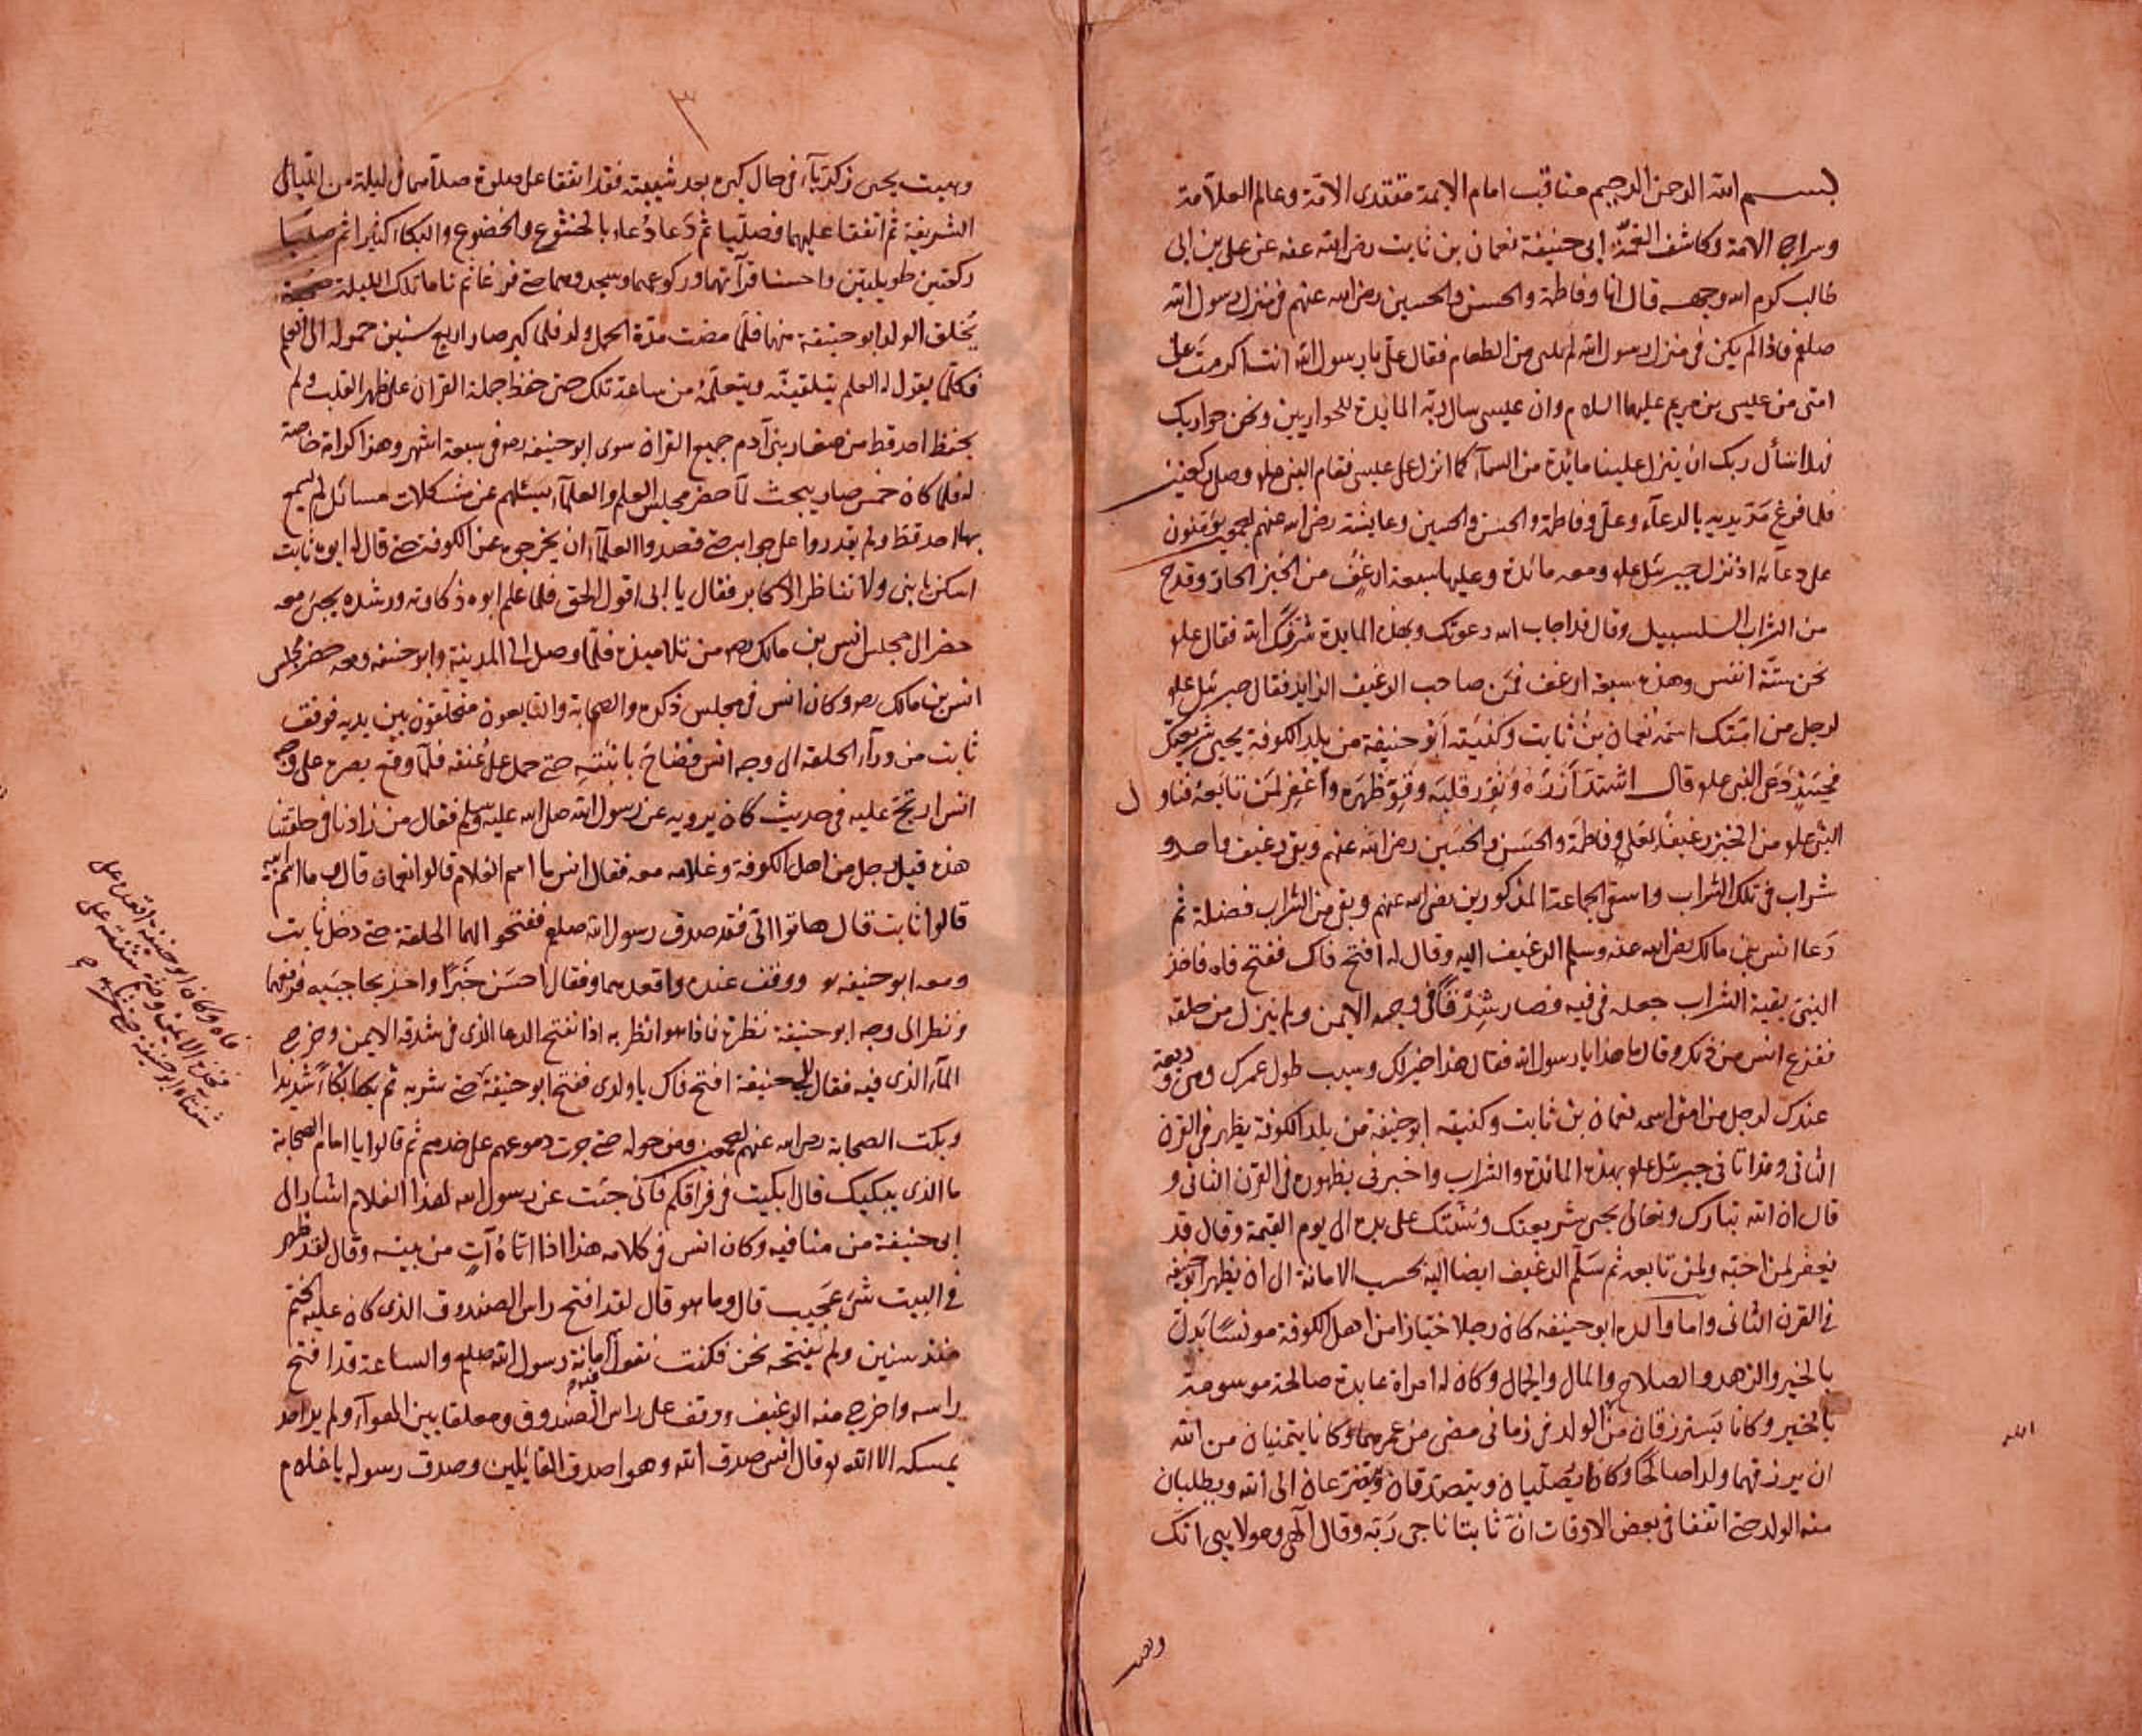 بسم الله الرحمن الرحيم مناقب امام الايمة مقتدى الامة وعالم العلامة
وسراج الامة وكاشف الغمة ابى حنيفة نعمان بن ثابت رضى الله عنه عن على بن ابى
طالب كرم الله وجهه قال انا وفاطمة والحسن والحسين رضى الله عنهم فى منزل رسول الله
صلعم فاذا لم يكن فى منزل رسول الله من الطعام فقال على يا رسول الله انت اكرمت على
امتى من عليسى بن مريم عليهما السلام وان عليسى سال ربه المايدة للحواريين ونحن حواريك
نسأل ربك ان ينزل علينا مائدة من السمآء كما انزل على عيسى فقام النبى علو وصلى ركعتين
فلما فرغ مد يديه بالدعآء وعلى وفاطمة والحسن والحسين وعايشة رضى الله عنهم اجمعين يؤمنون
على دعآئه اذ نزل جبرئيل علو ومعه مائدة وعليها سبعة ارغف من الخبز الحار وقدح
من الشراب السلسبيل وقال قد اجاب الله دعوتك وبهذه المايدة شرفك الله فقال علو
نحن ستة انفس وهذه سبعة ارغف فمن صاحب الرغيف الزايد فقال جبرئيل علو
لرجل من امتك اسمه نعمان بن ثابت وكنيته ابو حنيفة من بلد الكوفة يحيى شريعتك
فحينئذ دعى النبى علو وقال اشدد ازره ونور قلبه وقو ظهره واغفر لمن تابعه فناول
النبى علو من الخبز رغيفا لعلى وفاطمة والحسن والحسين رضى الله عنهم وبقى رغيف واحد و
شراب فى تلك الشراب واسقى الجماعة المذكورين رضى الله عنهم وبقى من الشراب فضلة ثم
دعا انس بن مالك رضى الله عنه وسلم الرغيف اليه وقال له افتح فاك ففتح فاه فاخذ
النبى بقية الشراب جعله فى فيه فصار شدقا فى وجهه الايمن ولم ينزل من حلقه
ففزع انس من ذلك وقال ما هذا يا رسول الله فقال هذا خير لك وسبب طول عمرك وهى وديعة
عندك لرجل من امتى اسمه نعمان بن ثابت وكنيته ابو حنيفة من بلد الكوفة يظهر فى القرن
الثانى وقد اتانى جبرئيل علو بهذه المائدة والشراب واخبرنى بظهوره فى القرن الثانى و
قال ان الله تبارك وتعالى يحيى شريعتك وسنتك على يده الى يوم القيمة وقال قد
يغفر لمن احبه ولمن تابعه ثم سلم الرغيف ايضا اليه بحسب الامانة الى ان يظهر ابو حنيفة
فى القرن الثانى واما والده ابو حنيفه كان رجلا خبازا من اهل الكوفة
بالخير والزهد والصلاح والمال والجمال وكان له امراة عابدة صالحة موسومة
بالخير وكانا يسترزقان من الولد فى زمانى مضى من عمرهما وكانا يتمنيان من الله
ان يرزقهما ولدا صالحا وكانا يصليان ويتصدقان ويتضرعان الى الله ويطلبان
منه الولد حتى اتفقا فى بعض الاوقات ان ثابتا ناجى ربه وقال الهى ومولايى انك
وهبت
الله
٣
وهبت يحيى زكريآء فى حال كبره بعد شيبته فقد اتفقا على صلوة صلاهما فى ليلة من الليالى
الشريفة ثم اتفقا عليهما فصليا ثم دعا دعاء بالخشوع والخضوع والبكاء كثيرا ثم صليا
ركعتين طويلتين واحسنا قرآتهما وركوعهما وسجودهما حتى فرغا ثم ناما تلك الليلة
يخلق الولد ابو حنيفة منهما فلما مضت مدة الحمل ولد فلما كبر صار اربع سنين حموله الى المعلم
فكلما يقول له المعلم يتلقينه ويتعلمه من ساعته تلك حتى حفظ جملة القرآن على ظهر القلب ولم
يحفظ احد قط من صغار بنى آدم جميع القران سوى ابو حنيفه رحه فى سبعة اشهر وهذا كرامة خاصة
له فلما كان خمس صار يبحث لما حضر مجلس العلم والعلمآء يسئلهم عن مشكلات مسائل لم يسمع
بها احد قط ولم يقدروا على جوابه حتى قصدوا العلمآء ان يخرجوه عن الكوفة حتى قال له ابوه ثابت
اسكن يا بنى ولا تناظر الاكابر فقال يا ابى اقول الحق فلما علم ابوه ذكاوته ورشده يجئ معه
حضر الى مجلس انس بن مالك رحه من تلاميذه فلما وصل الى المدينة وابو حنيفه ومعه حضر مجلس
انس بن مالك رحه وكان انس فى مجلس ذكره والصحابة والتابعون متحلقون بين يديه فوقف
ثابت من ورآء الحلقة الى وجه انس حتى حمل على عنقه فلما وقع بصره على وجه
انس ارتج عليه فى حديث كان يرويه عن رسول الله صلى الله عليه وسلم فقال من زادنا فى حلقتنا
هذه قيل رجل من اهل الكوفة وغلامه معه فقال انس ما اسم الغلام قالوا نعمان قال وما اسم ابيه
قالوا ثابت قال هاتوا الى فقد صدق رسول الله صلعم ففتحو الهما الحلقة حتى دخل ثابت
ومعه ابو حنيفه ووقف عنده واقعدهما وفقال احسن خبرا واخذ بحاجبيه فرفعهما
ونظر الى وجه ابو حنيفة نظرة فاذا هو انظر به اذا نفتح الدعا الذى فى شدقه الايمن وخرج
المآء الذى فيه فقال لابى حنيفة افتح فاك يا ولدى ففتح ابو حنيفة حتى شربه ثم بكا بكآء شديدا
وبكت الصحابة رضى الله عنهم اجمعين ومن حوله حتى جرت دموعهم على خدهم ثم قالوا يا امام الصحابة
ما الذى يبكيك قال ابكيت فى فراقكم فانى جئت عن رسول الله لهذا الغلام اشار الى
ابى حنيفة من منافيه وكان انس فى كلامه هذا اذا اتاه آت من بيته وقال لقد ظهر
فى البيت شئ عجيب قال وما هو قال لقد افتح راس الصندوق الذى كان عليه الختم
منذ سنين ولم يفتحه نحن فكنت تقول امانة رسول الله صلعم والساعة قد افتح
راسه واخرج منه الرغيف ووقف على راس الصندوق ومعلقا بين الهوآء ولم ير احد
يمسكه الا الله وقال انس صدق الله وهو اصدق القائلين وصدق رسوله يا غلام
فاه وكان ابو حنيفة